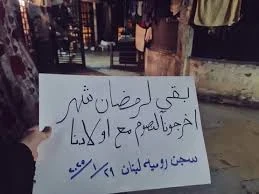 بقي لرمضان شهر
اخرجونا لنصوم مع اولادنا
سجن روميه لبنان ٢٠٢٥/١/٢٩